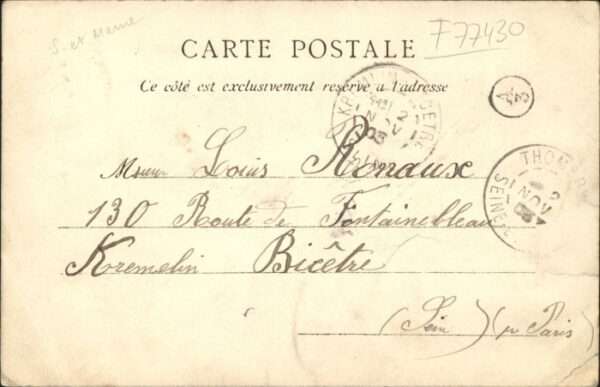 S. et Marne
F77430
CARTE POSTALE
Ce côté est exclusivement réservé à l'adresse
KREMLIN-BICETRE
2
NOV
03
A
3
Louis Ronaux
THOMERY
2
NOV
03
SEINE
130 Route de Fontainebleau
Kremelin Bicêtre
(Seine) (pr Paris)